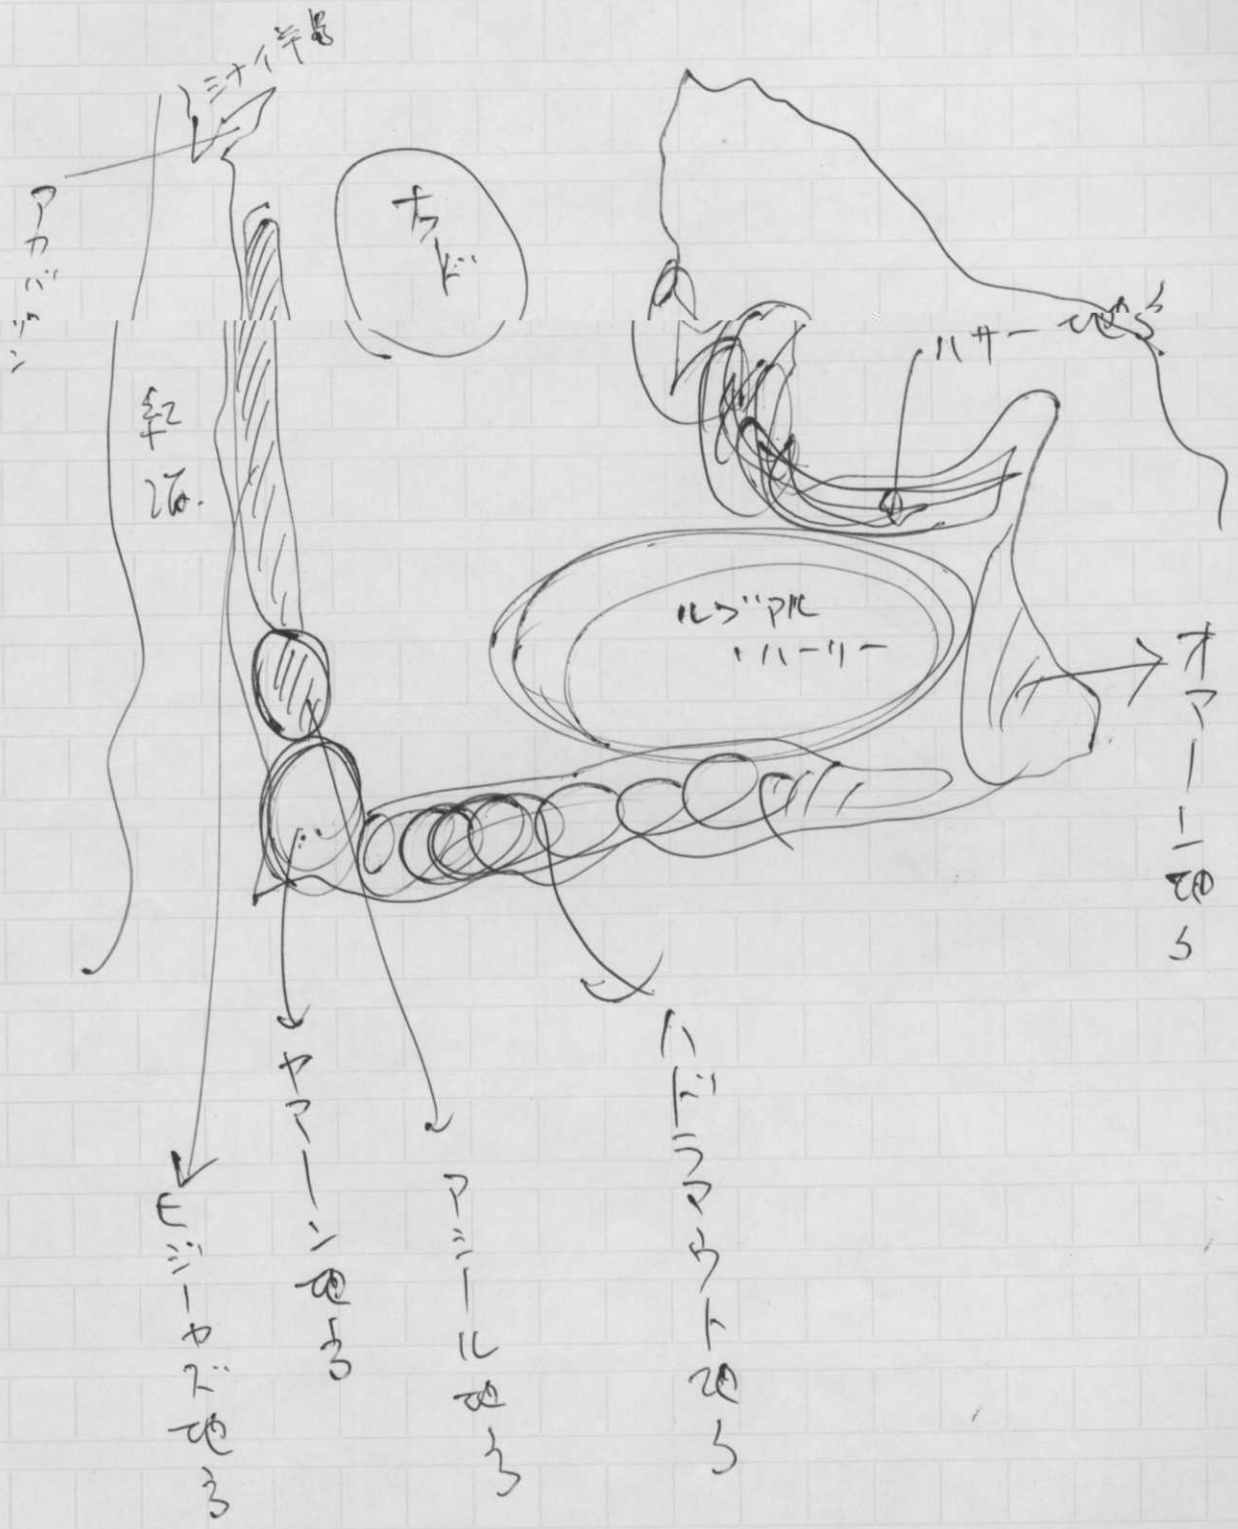 シナイ半島
アカバワン
紅海
ハサー地方
ルブアル
・ハーリー
オマーン地方
ハドラマウト地方
アシール地方
ヤマーン地方
ヒジーャズ地方